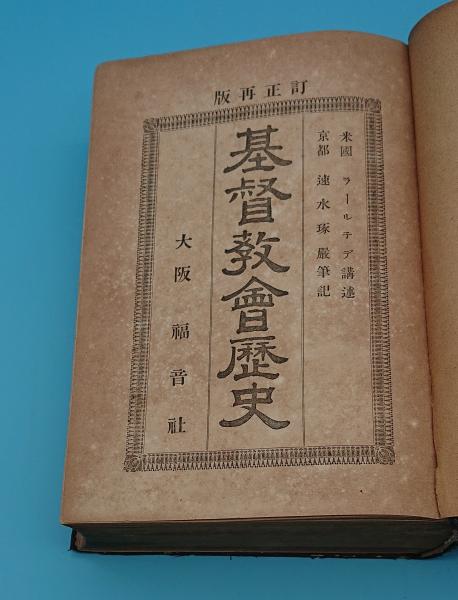 訂正再版
米國 ラールテデ講述
京都 速水琢巖筆記
基督教會歴史
大阪 福音社